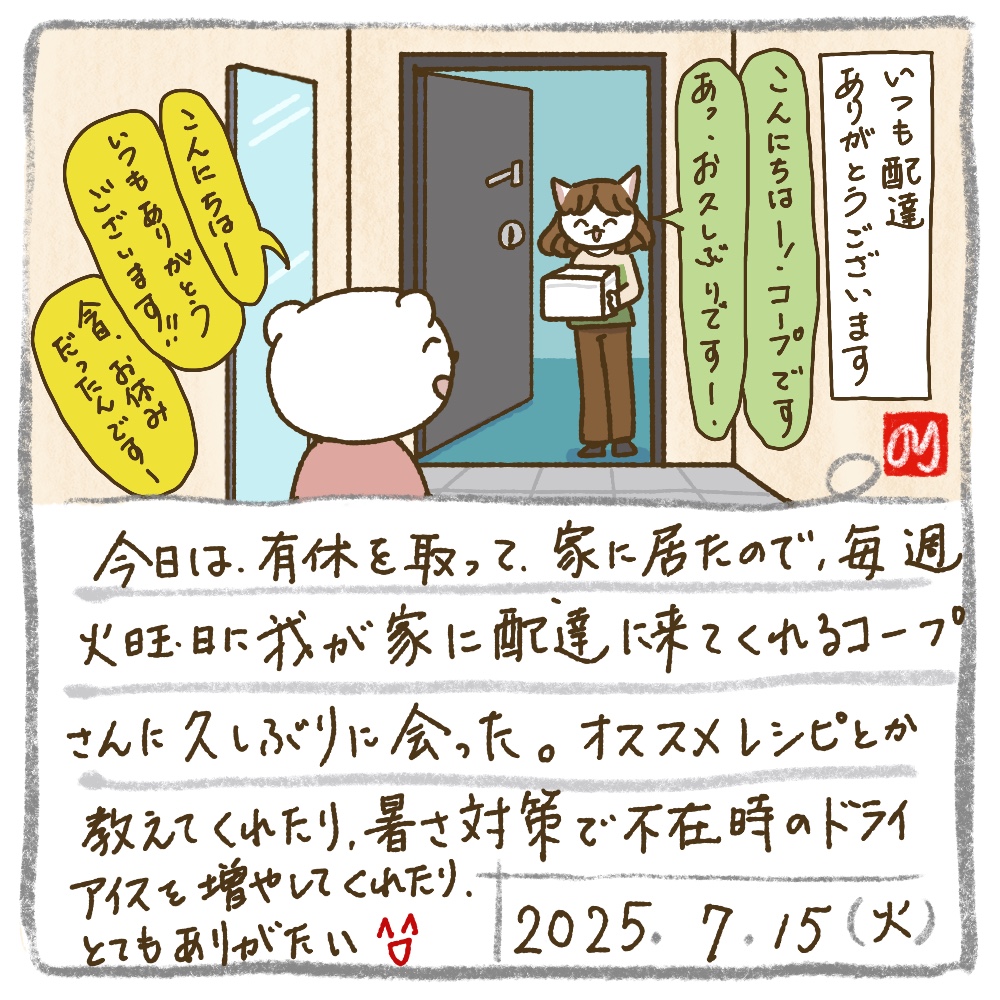 いつも配達
ありがとうございます
こんにちはー!コープです
あっ、お久しぶりですー。
こんにちはー
いつもありがとう
ございます!!
今日、お休み
だったんですー
今日は、有休を取って、家に居たので、毎週
火旺日に我が家に配達に来てくれるコープ
さんに久しぶりに会った。オススメレシピとか
教えてくれたり、暑さ対策で不在時のドライ
アイスを増やしてくれたり、
とてもありがたい
2025. 7. 15(火)